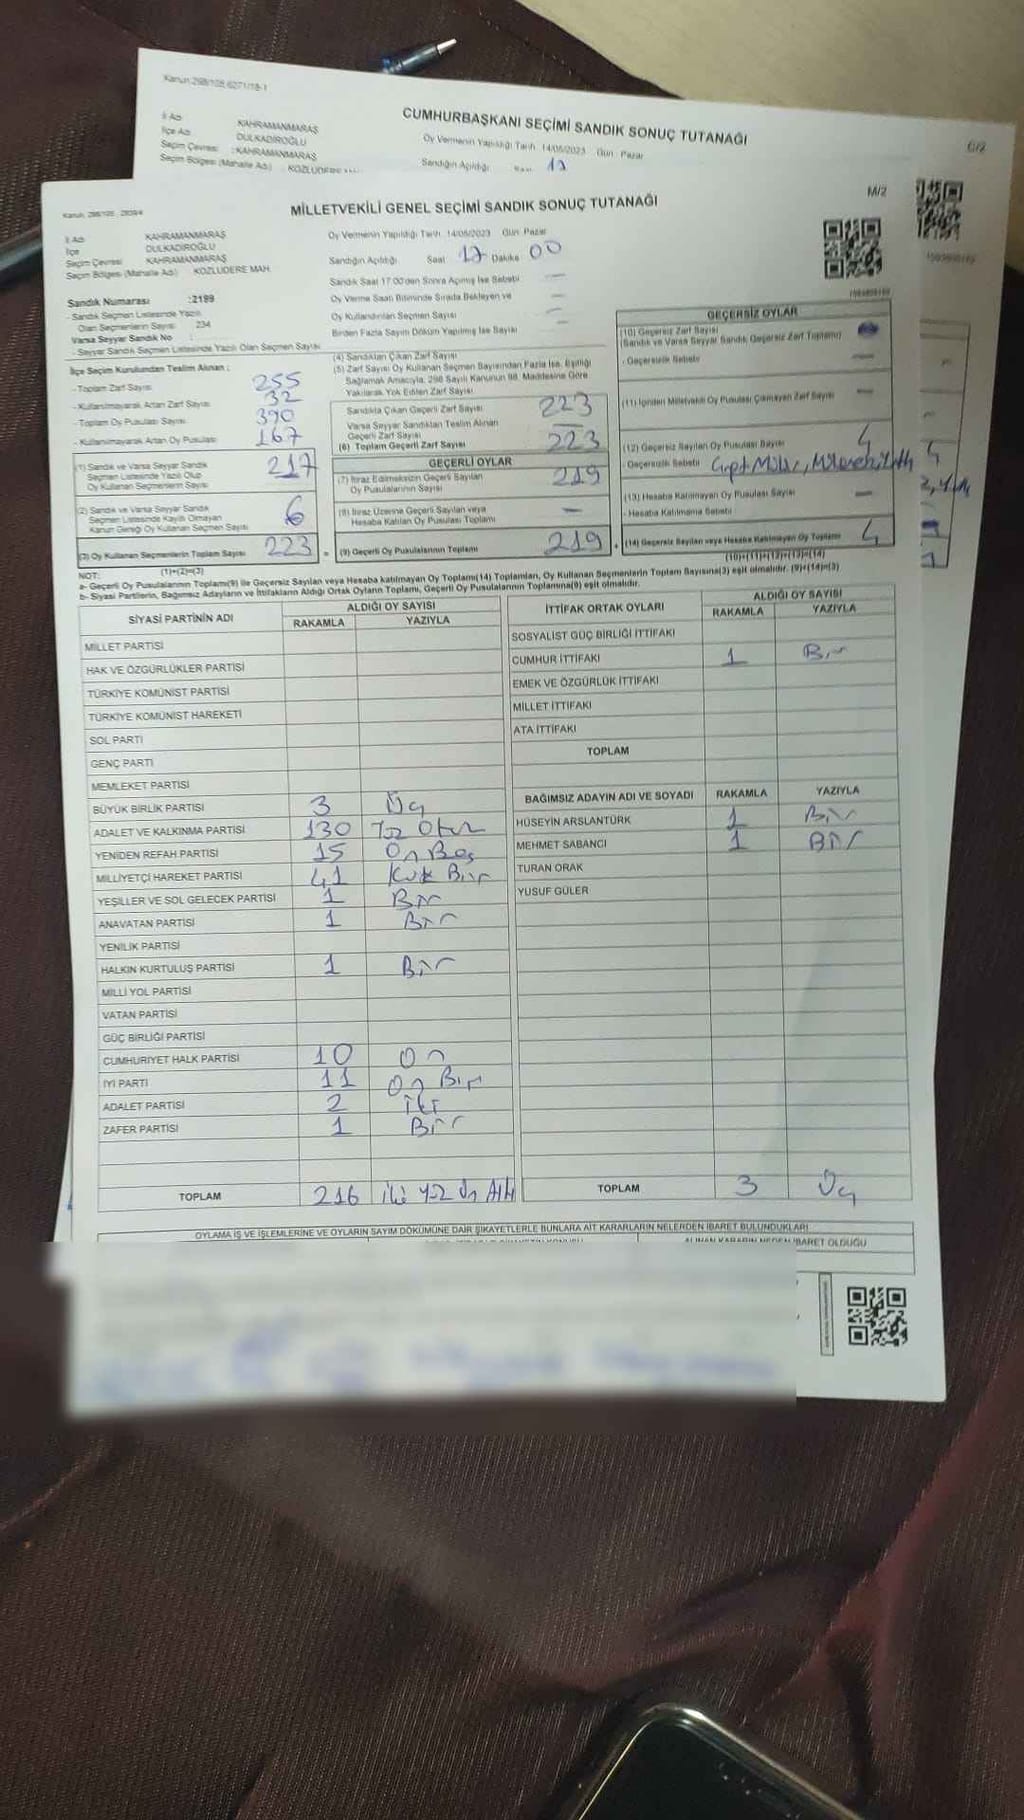 Kanun 298/105,6271/18-1
CUMHURBAŞKANI SEÇİMİ SANDIK SONUÇ TUTANAĞI
C/2
İl Adı KAHRAMANMARAŞ
İlçe Adı DULKADİROĞLU
Oy Vermenin Yapıldığı Tarih 14/05/2023 Gün Pazar
Seçim Çevresi : KAHRAMANMARAŞ
Seçim Bölgesi (Mahalle Adı) :
Sandığın Açıldığı
M/2
MİLLETVEKİLİ GENEL SEÇİMİ SANDIK SONUÇ TUTANAĞI
İl Adı KAHRAMANMARAŞ
İlçe DULKADİROĞLU
Seçim Çevresi KAHRAMANMARAŞ
Seçim Bölgesi (Mahalle Adı) KOZLUDERE MAH.
Oy Vermenin Yapıldığı Tarih 14/05/2023 Gün Pazar
Sandığın Açıldığı Saat 17 Dakika 00
Sandık Saat 17.00'den Sonra Açılmış İse Sebebi —
Oy Verme Saati Bitiminde Sırada Bekleyen ve —
Oy Kullandırılan Seçmen Sayısı
Birden Fazla Sayım Döküm Yapılmış İse Sayısı —
Sandık Numarası :2199
- Sandık Seçmen Listesinde Yazılı
Olan Seçmenlerin Sayısı : 234
Varsa Seyyar Sandık No :
- Seyyar Sandık Seçmen Listesinde Yazılı Olan Seçmen Sayısı
İlçe Seçim Kurulundan Teslim Alınan :
- Toplam Zarf Sayısı 255
- Kullanılmayarak Artan Zarf Sayısı 32
- Toplam Oy Pusulası Sayısı 390
- Kullanılmayarak Artan Oy Pusulası 167
(1) Sandık ve Varsa Seyyar Sandık
Seçmen Listesinde Yazılı Olup
Oy Kullanan Seçmenlerin Sayısı 217
(2) Sandık ve Varsa Seyyar Sandık
Seçmen Listesinde Kayıtlı Olmayan
Kanun Gereği Oy Kullanan Seçmen Sayısı 6
(3) Oy Kullanan Seçmenlerin Toplam Sayısı 223
(1)+(2)=(3)
(4) Sandıktan Çıkan Zarf Sayısı
(5) Zarf Sayısı Oy Kullanan Seçmen Sayısından Fazla İse, Eşitliği
Sağlamak Amacıyla, 298 Sayılı Kanunun 98. Maddesine Göre
Yakılarak Yok Edilen Zarf Sayısı
Sandıkta Çıkan Geçerli Zarf Sayısı 223
Varsa Seyyar Sandıktan Teslim Alınan
Geçerli Zarf Sayısı —
(6) Toplam Geçerli Zarf Sayısı 223
GEÇERLİ OYLAR
(7) İtiraz Edilmeksizin Geçerli Sayılan
Oy Pusulalarının Sayısı 219
(8) İtiraz Üzerine Geçerli Sayılan veya
Hesaba Katılan Oy Pusulası Toplamı —
(9) Geçerli Oy Pusulalarının Toplamı 219
GEÇERSİZ OYLAR
(10) Geçersiz Zarf Sayısı
(Sandık ve Varsa Seyyar Sandık Geçersiz Zarf Toplamı)
- Geçersizlik Sebebi —
(11) İçinden Milletvekili Oy Pusulası Çıkmayan Zarf Sayısı —
(12) Geçersiz Sayılan Oy Pusulası Sayısı 4
- Geçersizlik Sebebi
(13) Hesaba Katılmayan Oy Pusulası Sayısı —
- Hesaba Katılmama Sebebi
(14) Geçersiz Sayılan veya Hesaba Katılmayan Oy Toplamı 4
(10)+(11)+(12)+(13)=(14)
NOT:
a- Geçerli Oy Pusulalarının Toplamı(9) ile Geçersiz Sayılan veya Hesaba katılmayan Oy Toplamı(14) Toplamları, Oy Kullanan Seçmenlerin Toplam Sayısına(3) eşit olmalıdır. (9)+(14)=(3)
b- Siyasi Partilerin, Bağımsız Adayların ve İttifakların Aldığı Ortak Oyların Toplamı, Geçerli Oy Pusulalarının Toplamına(9) eşit olmalıdır.
SİYASİ PARTİNİN ADI ALDIĞI OY SAYISI
RAKAMLA YAZIYLA
MİLLET PARTİSİ
HAK VE ÖZGÜRLÜKLER PARTİSİ
TÜRKİYE KOMÜNİST PARTİSİ
TÜRKİYE KOMÜNİST HAREKETİ
SOL PARTİ
GENÇ PARTİ
MEMLEKET PARTİSİ
BÜYÜK BİRLİK PARTİSİ 3 Üç
ADALET VE KALKINMA PARTİSİ 130 Yüz Otuz
YENİDEN REFAH PARTİSİ 15 On Beş
MİLLİYETÇİ HAREKET PARTİSİ 41 Kırk Bir
YEŞİLLER VE SOL GELECEK PARTİSİ 1 Bir
ANAVATAN PARTİSİ 1 Bir
YENİLİK PARTİSİ
HALKIN KURTULUŞ PARTİSİ 1 Bir
MİLLİ YOL PARTİSİ
VATAN PARTİSİ
GÜÇ BİRLİĞİ PARTİSİ
CUMHURİYET HALK PARTİSİ 10 On
İYİ PARTİ 11 On Bir
ADALET PARTİSİ 2 İki
ZAFER PARTİSİ 1 Bir
TOPLAM 216 iki yüz On Altı
İTTİFAK ORTAK OYLARI ALDIĞI OY SAYISI
RAKAMLA YAZIYLA
SOSYALİST GÜÇ BİRLİĞİ İTTİFAKI
CUMHUR İTTİFAKI 1 Bir
EMEK VE ÖZGÜRLÜK İTTİFAKI
MİLLET İTTİFAKI
ATA İTTİFAKI
TOPLAM
BAĞIMSIZ ADAYIN ADI VE SOYADI RAKAMLA YAZIYLA
HÜSEYİN ARSLANTÜRK 1 Bir
MEHMET SABANCI 1 Bir
TURAN ORAK
YUSUF GÜLER
TOPLAM 3 Üç
OYLAMA İŞ VE İŞLEMLERİNE VE OYLARIN SAYIM DÖKÜMÜNE DAİR ŞİKAYETLERLE BUNLARA AİT KARARLARIN NELERDEN İBARET BULUNDUKLARI
ALINAN KARARIN NEDEN İBARET OLDUĞU